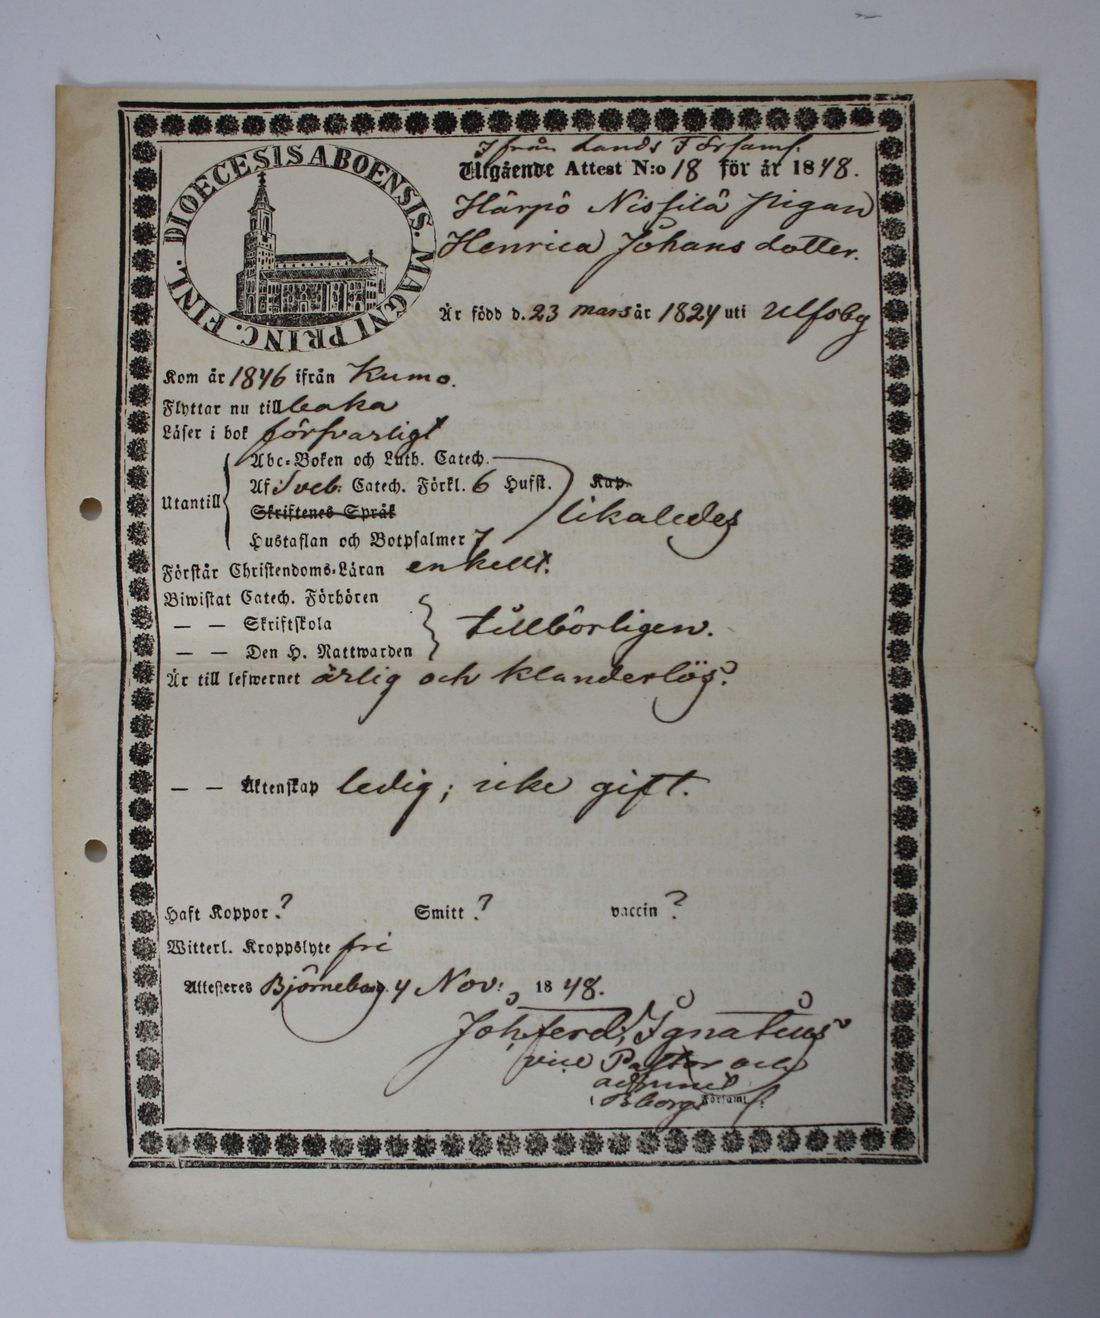 DIOECESIS ABOENSIS. MAGNI PRINC. FINL.
Ifrån Lands Församl.
Utgående Attest N:o 18 för år 1848.
Härpö Nissilä pigan
Henrica Johans dotter.
Är född d. 23 mars år 1824 uti Ulfsby
Kom år 1846 ifrån Kumo.
Flyttar nu till baka
Läser i bok försvarligt
Abc-Boken och Luth. Catech.
Utantill Af Sveb. Catech. Förkl. 6 Hufst. Kap.
Skriftenes Språk likaledes
Hustaflan och Botpsalmer 7
Förstår Christendoms-Läran enkelt.
Biwistat Catech. Förhören
— — Skriftskola tillbörligen.
— — Den H. Nattwarden
Är till lefwernet ärlig och klanderlös.
— — Äktenskap ledig; icke gift.
Haft Koppor ? Smitt ? vaccin ?
Witterl. Kroppslyte fri
Attesteras Björneborg d. 4 Nov: 1848.
Joh. ferd. Ignatius
vice Pastor och
Bborgs Församl.